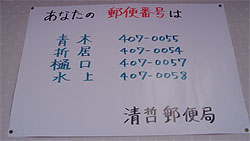 あなたの郵便番号は
青木 407-0055
折居 407-0054
樋口 407-0057
水上 407-0058
清哲郵便局